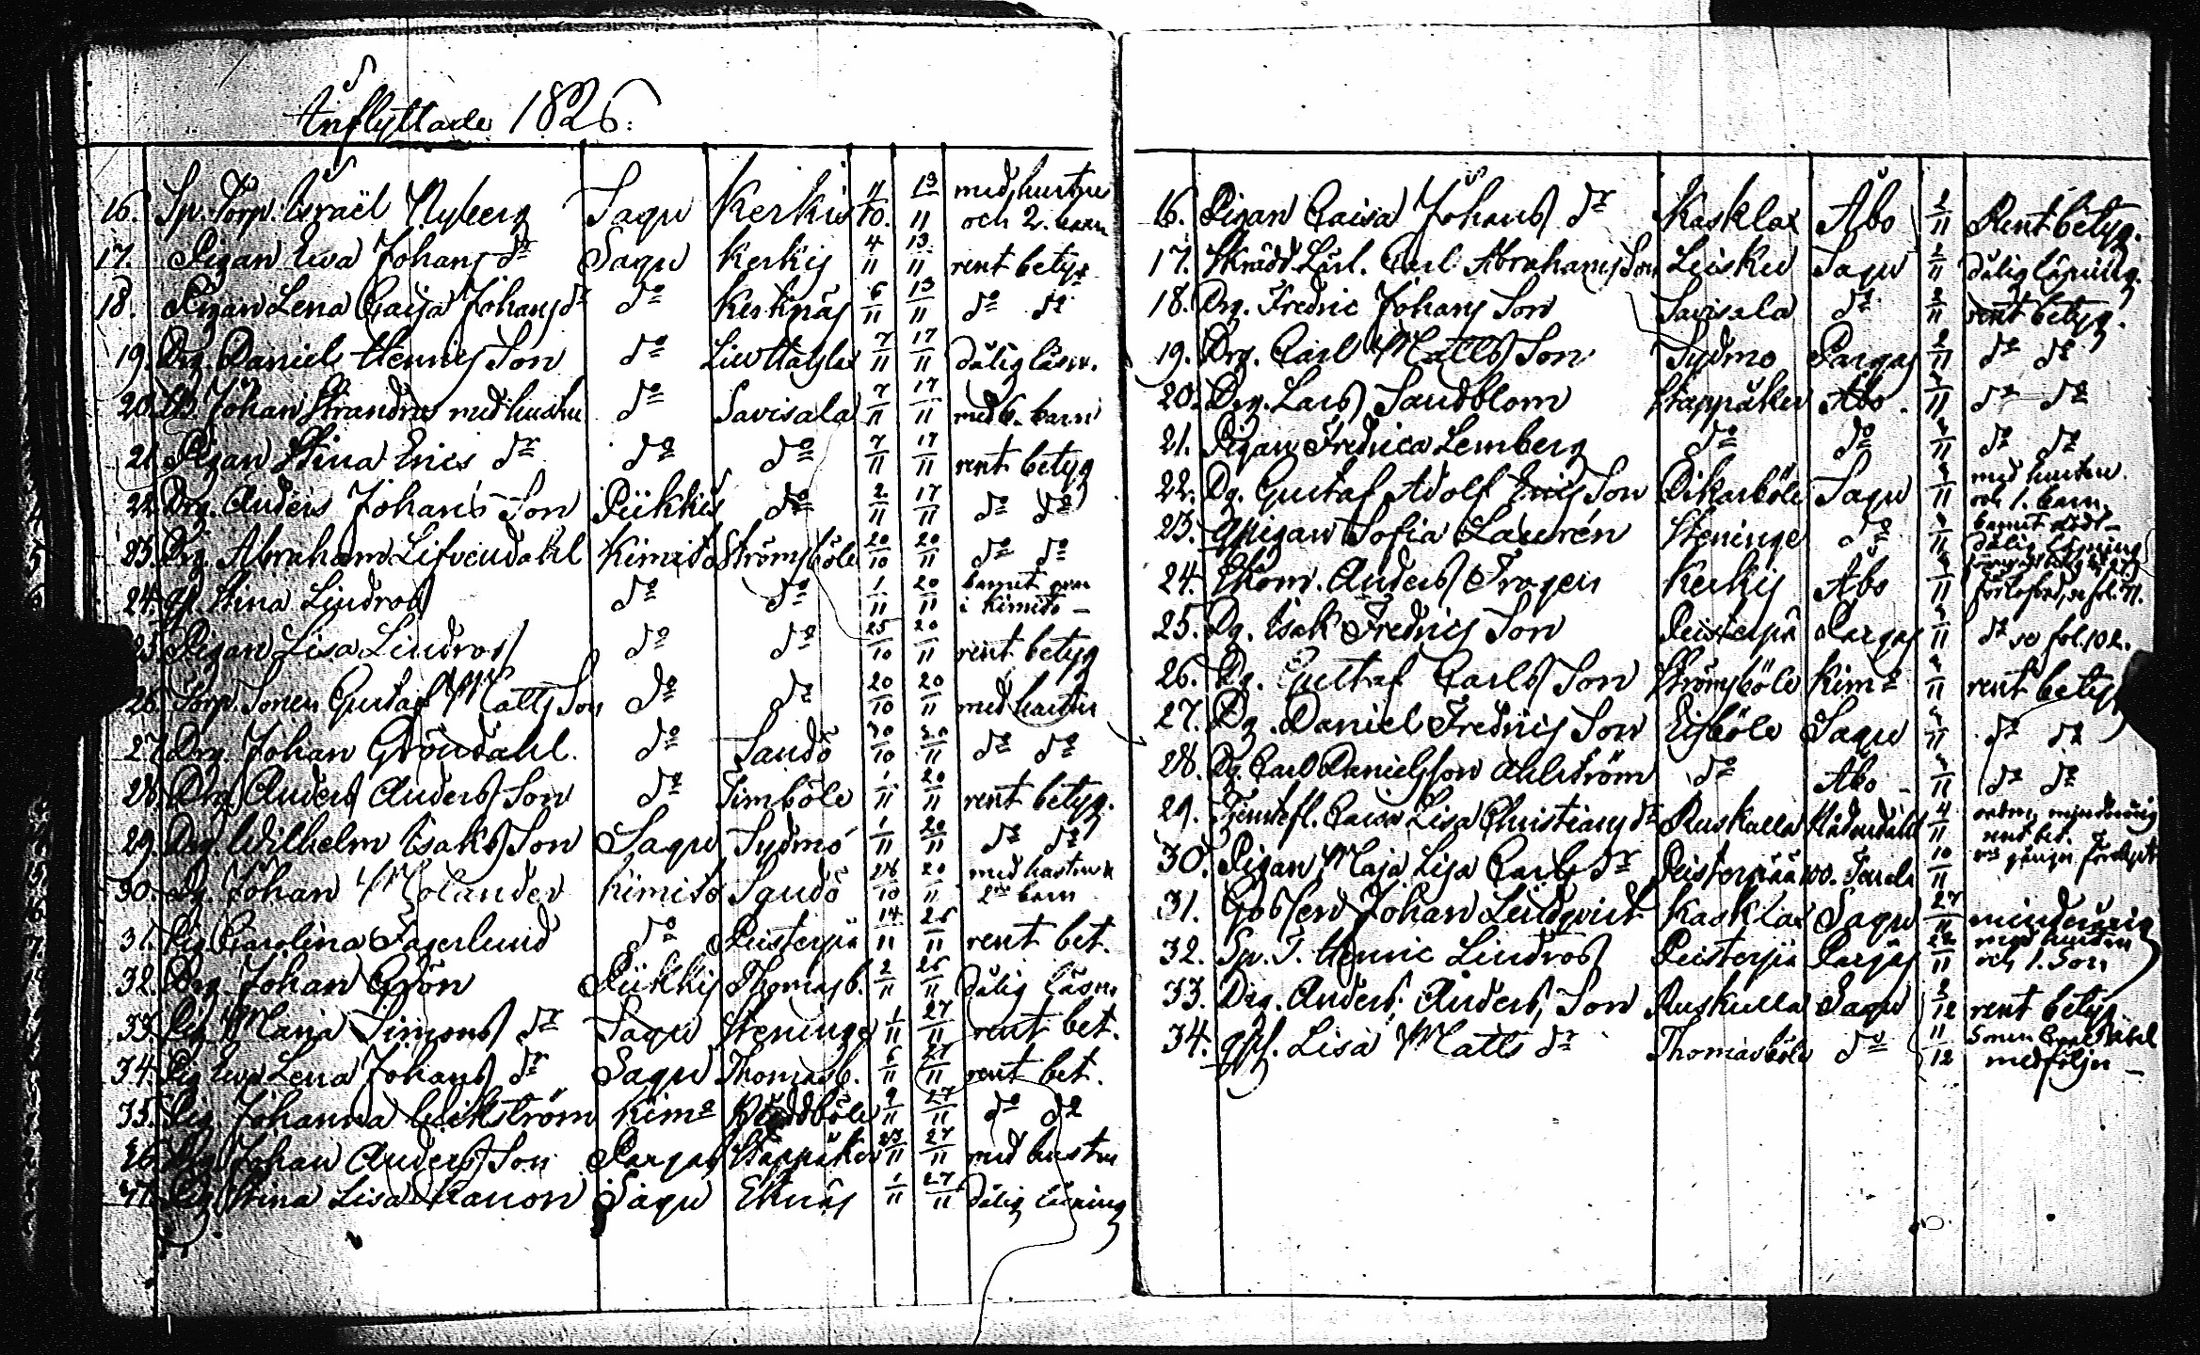 Inflyttade 1826.
16. Sp. Torp. Israël Nyberg Sagu Kerkis 11/10. 13/11 med hustru och 2. barn
17. Pigan Ewa Johans dr Sagu Kerkis 4/11 13/11 rent betyg
18. Pigan Lena Caisa Johans dr do Kerknäs 6/11 13/11 do do
19. Drg. Daniel Henrics Son do 7/11 17/11 dålig läsn.
20. Johan Strandros med hustru do Savisala 7/11 17/11 med 6. barn
21. Pigan Stina Erics dr do do 7/11 17/11 rent betyg
22. Drg. Anders Johans Son Piikkis do 2/11 17/11 do do
23. Drg. Abraham Lifvendahl Kimito Strömsböle 20/10 20/11 do do
24. Stina Lindros do do 1/11 20/11 barnet i Kimito
25. Pigan Lisa Lindros do do 25/10 20/11 rent betyg
26. Torp. Sonen Gustaf Matts Son do do 20/10 20/11 med hustru
27. Drg. Johan Gröndahl. do Sandö 30/10 20/11 do do
28. Drg. Anders Anders Son do Simböle 1/11 20/11 rent betyg.
29. Drg. Wilhelm Isaks Son Sagu Sydmo 1/11 20/11 do do
30. Dg. Johan Molander Kimito Sandö 28/10 20/11 med hustru 2 barn
31. Pig. Carolina Fagerlund do Peisterpä 14/11 25/11 rent bet.
32. Drg. Johan Grön Piikkis Thomasb. 2/11 25/11 Dålig läsn.
33. Pig. Maria Simons dr Sagu Steninge 1/11 27/11 rent bet.
34. Pig. Ewa Lena Johans dr Sagu Thomasb. 6/11 27/11 rent bet.
35. Pig. Johanna Wikström Kimo 9/11 27/11 do do
36. Drg. Johan Anders Son Pargas Stappåker 23/11 27/11 med hustru
37. Pig. Stina Lisa Kanon Sagu Eknäs 1/11 27/11 Dålig läsning
16. Pigan Caisa Johans dr Kasklax Åbo 2/11 Rent betyg.
17. Skrädd. Lärl. Carl Abrahams Son Leisku Sagu 2/11 dålig läsning.
18. Drg. Fredric Johans Son Savisala do 2/11 rent betyg.
19. Drg. Carl Matts Son Sydmo Pargas 2/11 do do
20. Drg. Lars Sandblom Stappåker Åbo. 2/11 do do
21. Pigan Fredrica Lemberg do do 2/11 do do
22. Dg. Gustaf Adolf Erics Son Dikarböle Sagu 2/11 med hustru och 1. barn
23. Qpigan Sofia Laurén Steninge do 2/11 barnet dödt dålig läsning
24. Anders Trogen Kerkis Åbo 2/11 förlofvad, se fol. 71.
25. Dg. Isak Fredrics Son Peisterpä Pargas 2/11 do se fol. 102.
26. Dg. Gustaf Carls Son Strömsböle Kimo 2/11 rent betyg
27. Dg. Daniel Fredrics Son Eisböle Sagu 2/11 do do
28. Dg. Carl Danielsson Ahlström do Åbo 2/11 do do
29. Tjenstefl. Caisa Lisa Christians dr Ruskulla Nådendahl 4/11 minderårig rent bet.
30. Pigan Maja Lisa Carls dr Peisterpää 10/11
31. Gossen Johan Lindqvist Kasklax Sagu 27/11 minderårig
32. Sp. T. Henric Lindros Peisterpä Pargas 28/11 med hustru och 1. Son
33. Drg. Anders Anders Son Ruskulla Sagu 2/12 rent betyg
34. Lisa Matts dr Thomasböle do 11/12 Sonen medföljer